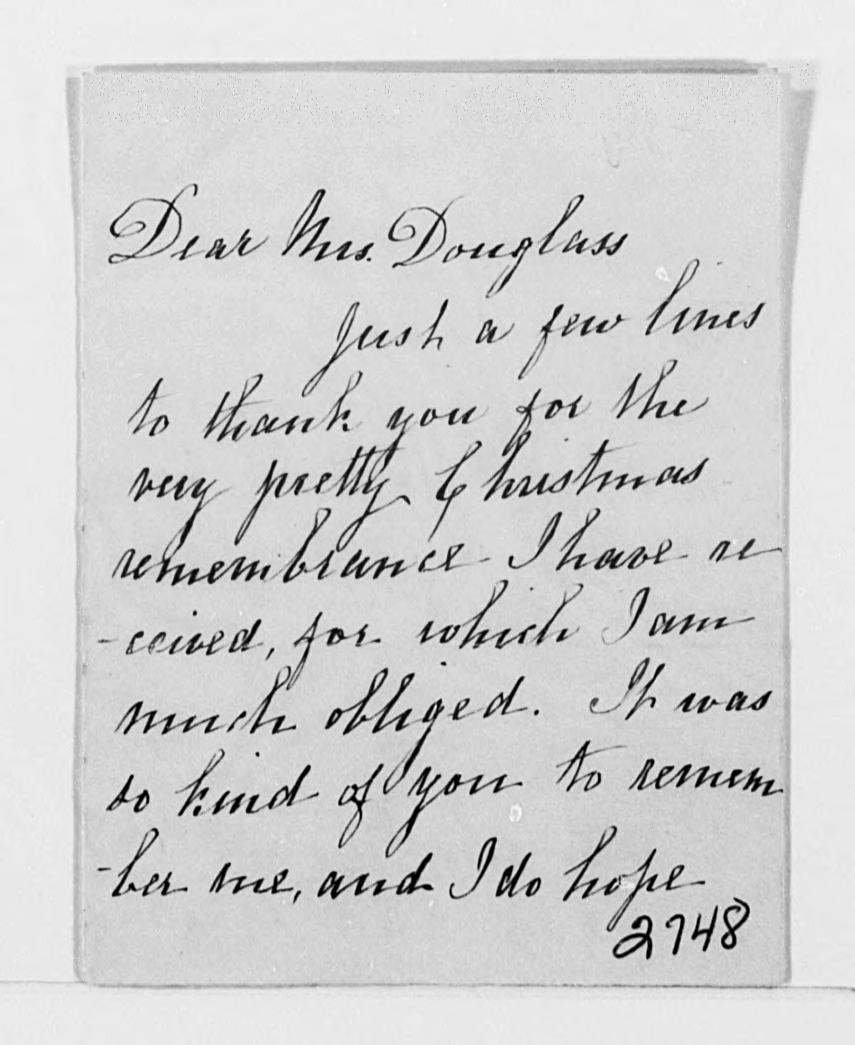 Dear Mrs. Douglass
Just a few lines
to thank you for the
very pretty Christmas
remembrance I have re
-ceived, for which I am
much obliged. It was
so kind of you to remem
-ber me, and I do hope
2748